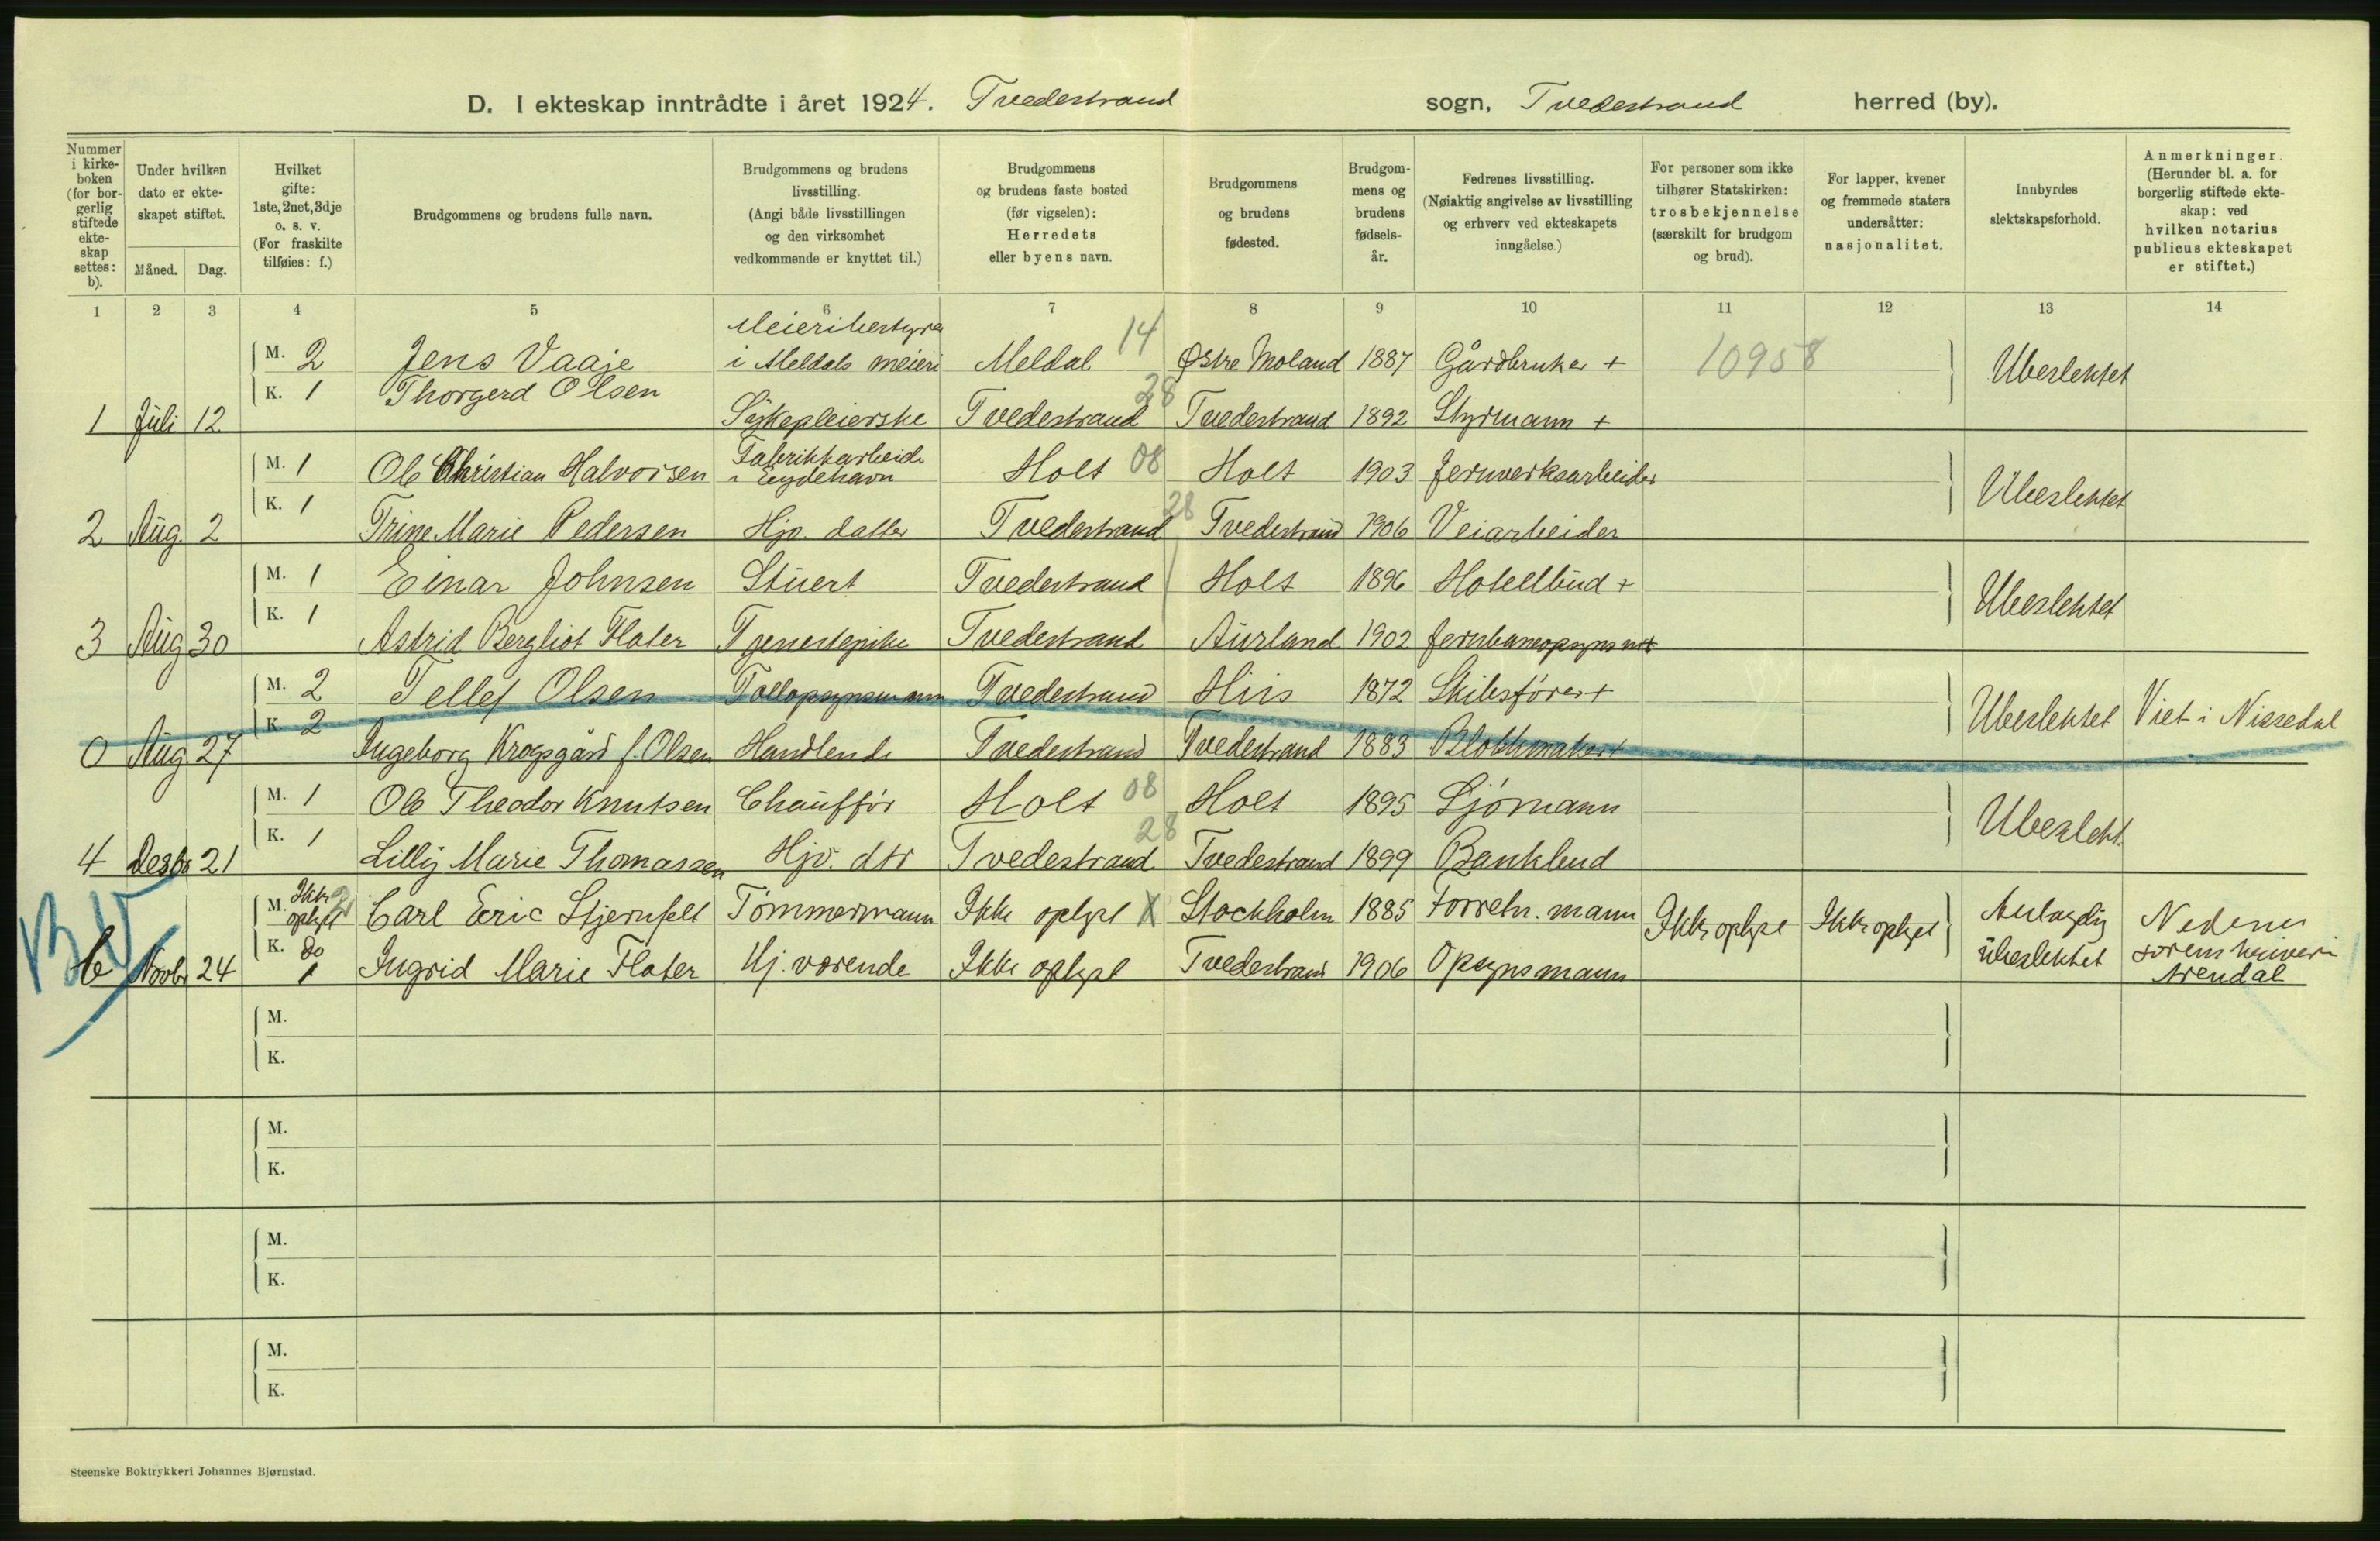 D. I ekteskap inntrådte i året 1924. Tvedestrand sogn, Tvedestrand herred (by).
Nummer i kirkeboken (for borgerlig stiftede ekteskap settes: b).
Under hvilken dato er ekteskapet stiftet.
Måned. Dag.
Hvilket gifte: 1ste, 2net, 3dje o. s. v. (For fraskilte tilføies: f.)
Brudgommens og brudens fulle navn.
Brudgommens og brudens livsstilling. (Angi både livsstillingen og den virksomhet vedkommende er knyttet til.)
Brudgommens og brudens faste bosted (før vigselen): Herredets eller byens navn.
Brudgommens og brudens fødested.
Brudgommens og brudens fødselsår.
Fedrenes livsstilling. (Nøiaktig angivelse av livsstilling og erhverv ved ekteskapets inngåelse.)
For personer som ikke tilhører Statskirken: trosbekjennelse (særskilt for brudgom og brud).
For lapper, kvener og fremmede staters undersåtter: nasjonalitet.
Innbyrdes slektskapsforhold.
Anmerkninger. (Herunder bl. a. for borgerlig stiftede ekteskap: ved hvilken notarius publicus ekteskapet er stiftet.)
1 2 3 4 5 6 7 8 9 10 11 12 13 14
M. 2 Jens Vaaje Meieribestyrer i Meldals meieri Meldal 14 Østre Moland 1887 Gårdbruker + 10958 Ubeslektet
1 Juli 12 K. 1 Thorgerd Olsen Sykepleierske Tvedestrand 28 Tvedestrand 1892 Styrmann +
M. 1 Ole Christian Halvorsen Fabrikkarbeider i Eydehavn Holt 08 Holt 1903 Jernverksarbeider Ubeslektet
2 Aug. 2 K. 1 Trine Marie Pedersen Hjv. datter Tvedestrand 28 Tvedestrand 1906 Veiarbeider
M. 1 Einar Johnsen Stuert Tvedestrand Holt 1896 Hotellbud + Ubeslektet
3 Aug 30 K. 1 Astrid Bergliot Flater Tjenestepike Tvedestrand Aurland 1902 Jernbaneopsynsm +
M. 2 Tellef Olsen Tollopsynsmann Tvedestrand His 1872 Skibsfører + Ubeslektet Viet i Nissedal
0 Aug. 27 K. 2 Ingeborg Krogsgård f. Olsen Handlende Tvedestrand Tvedestrand 1883 Blokkmaker +
M. 1 Ole Theodor Knutsen Chauffør Holt 08 Holt 1895 Sjømann Ubeslekt.
4 Desbr 21 K. 1 Lilly Marie Thomassen Hjv. dtr Tvedestrand 28 Tvedestrand 1899 Bankbud
M. Ikke oplyst Carl Eric Stjernfelt Tømmermann Ikke oplyst X Stockholm 1885 Forretn. mann Ikke oplyst Ikke oplyst Antagelig ubeslektet Nedenes sorenskriveri Arendal
b Novbr 24 K. do 1 Ingrid Marie Flater Hj. værende Ikke oplyst Tvedestrand 1906 Opsynsmann
M.
K.
M.
K.
M.
K.
M.
K.
Steenske Boktrykkeri Johannes Bjørnstad.